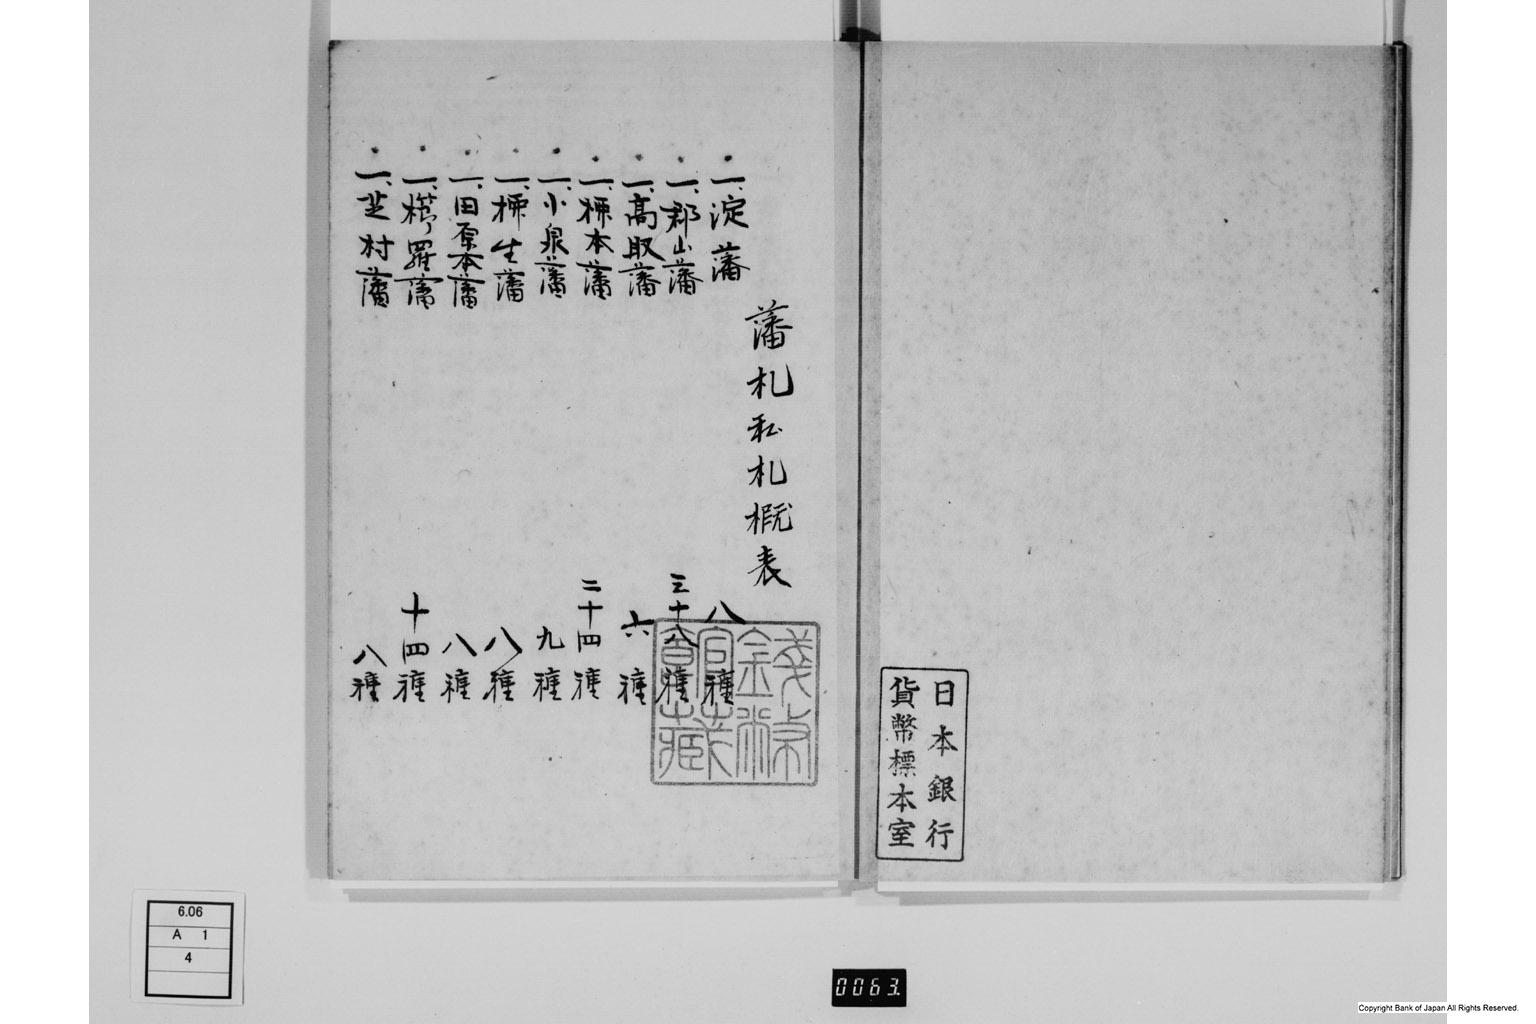 日本銀行
貨幣標本室
藩札私札概表
一、淀藩 八種
一、郡山藩 三十八種
一、高取藩 六種
一、柳本藩 二十四種
一、小泉藩 九種
一、柳生藩 八種
一、田原本藩 八種
一、櫛羅藩 十四種
一、芝村藩 八種
錢幣館藏
6.06
A 1
4
0063.
Copyright Bank of Japan All Rights Reserved.